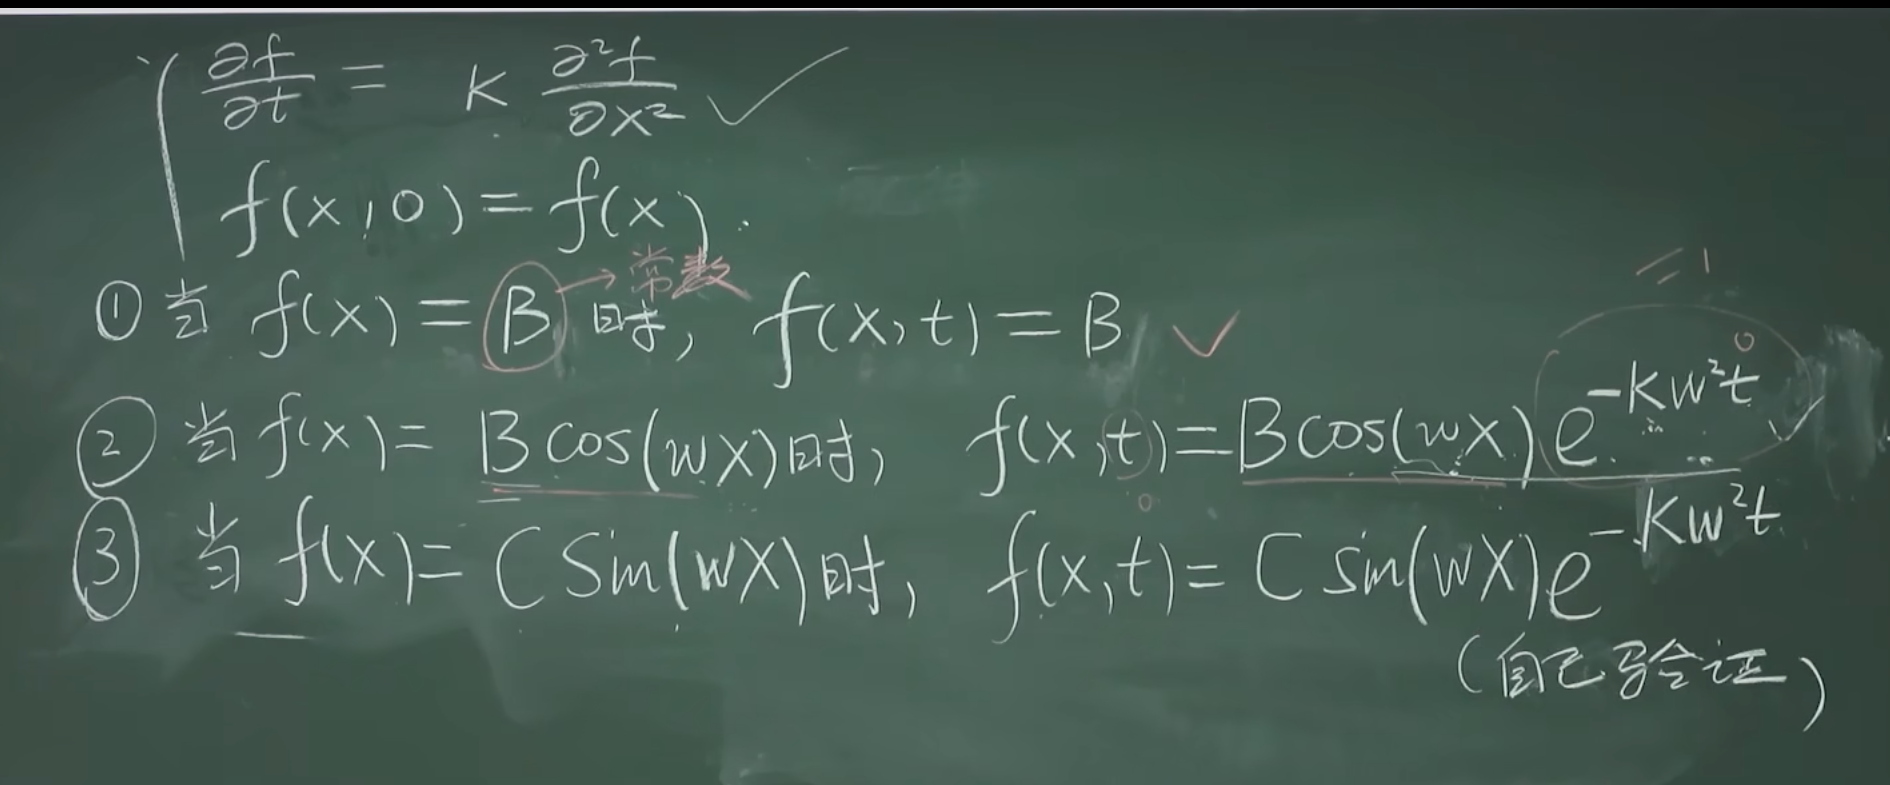 ∂f/∂t = K ∂²f/∂x² ✓
f(x,0) = f(x).
→ 常数
= 1
① 当 f(x) = B 时, f(x,t) = B ✓
② 当 f(x) = B cos(wx) 时, f(x,t) = B cos(wx) e^{-Kw²t}
0
0
③ 当 f(x) = C Sin(wx) 时, f(x,t) = C sin(wx) e^{-Kw²t}
(自己验证)